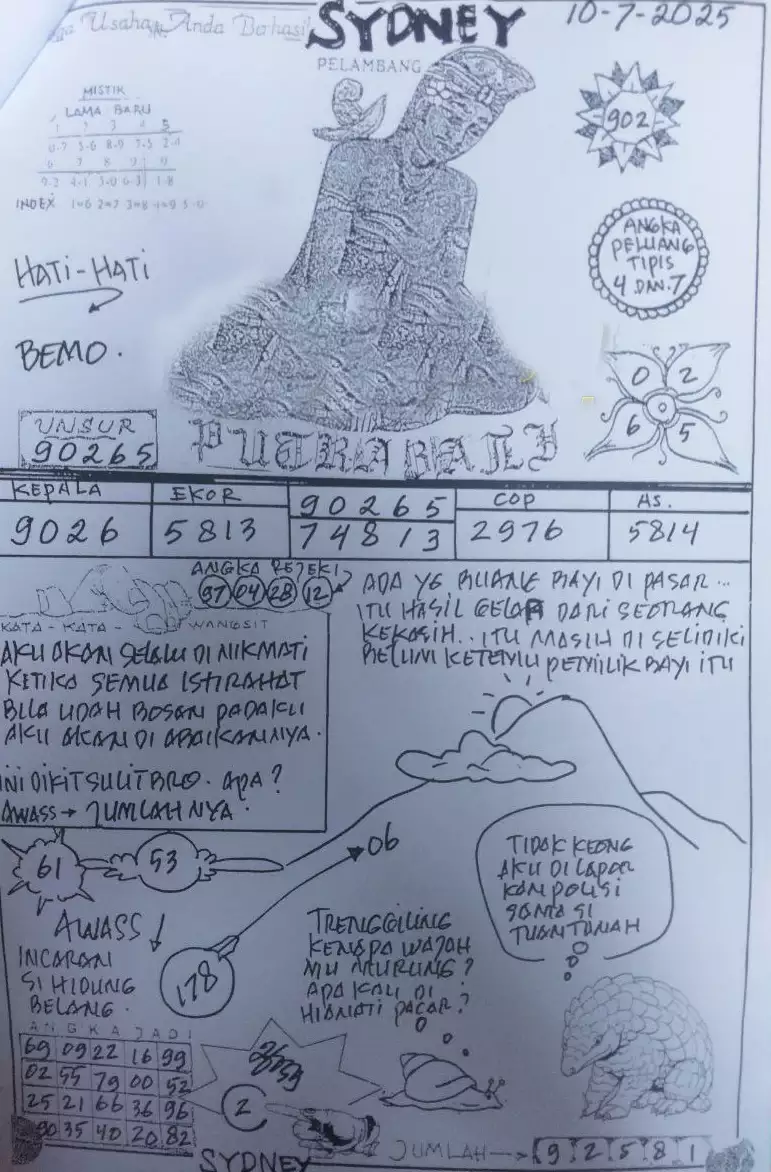 Usaha Anda Berhasil
SYDNEY
10-7-2025
PELAMBANG
MISTIK
LAMA BARU
1 2 3 4 5
0-7 5-6 8-9 7-5 2-4
6 7 8 9 0
9-2 4-1 3-0 6-3 1-8
INDEX 1=6 2=7 3=8 4=9 5-0
902
ANGKA
PELUANG
TIPIS
4 DAN.7
HATI-HATI
BEMO.
0 2
6 5
UNSUR
90265
PUTRA BALI
KEPALA
9026
EKOR
5813
90265
74813
COP
2976
AS.
5814
ANGKA REJEKI
97 04 28 12
ADA YG BUANG BAYI DI PASAR...
ITU HASIL GELAP DARI SEORANG
KEKASIH.. ITU MASIH DI SELIDIKI
BELUM KETEMU PEMILIK BAYI ITU
KATA-KATA-WANGSIT
AKU AKAN SELALU DI NIKMATI
KETIKA SEMUA ISTIRAHAT
BILA UDAH BOSAN PADAKU
AKU AKAN DI ABAIKANNYA.
INI DIKIT SULIT BRO. APA?
AWASS → JUMLAHNYA.
61
53
06
178
AWASS
INCARAN
SI HIDUNG
BELANG.
TRENGGILING
KENAPA WAJAH
MU MURUNG?
APA KAU DI
HIANATI PACAR?
TIDAK KEONG
AKU DI LAPOR
KAN POLISI
SAMA SI
TUAN TANAH
ANGKA JADI
69 09 22 16 99
02 55 79 00 52
25 21 66 36 96
90 35 40 20 82
2
SYDNEY
JUMLAH → 9 2 5 8 1